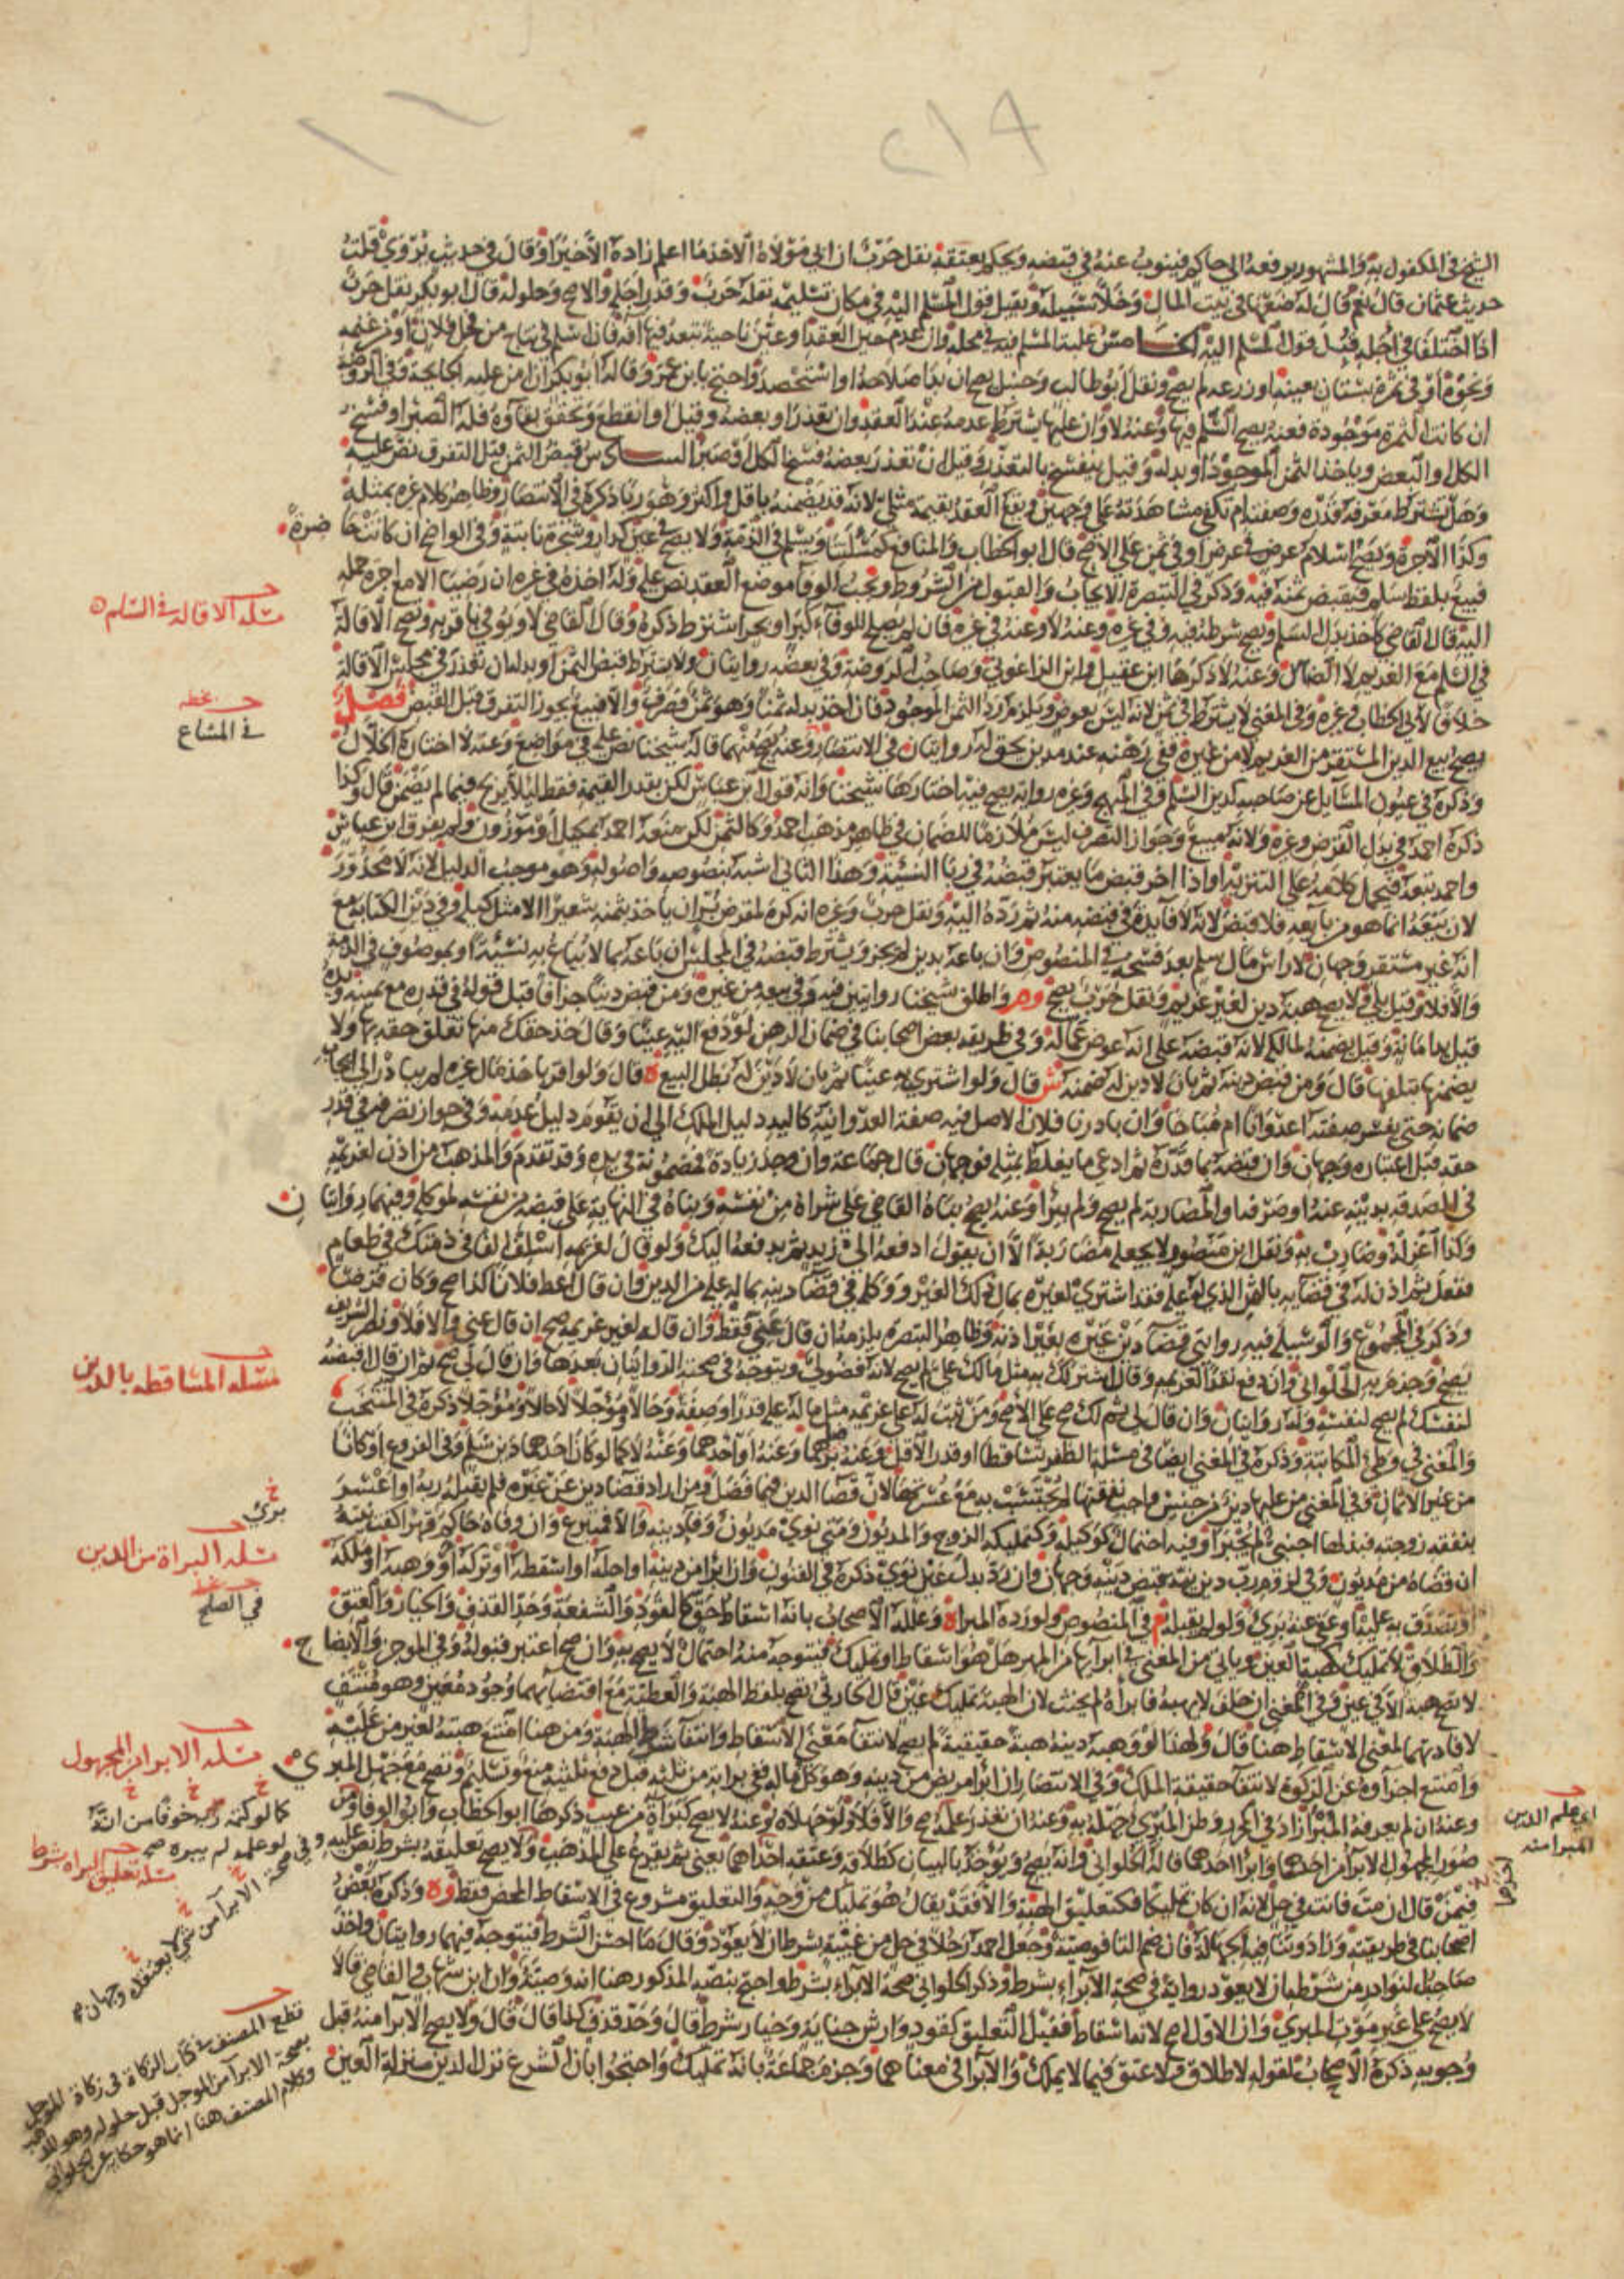 ٢١٩
الشيخ في المكفول به والمشهور يرفعه الى حاكم فينوب عنه في قبضه ويحكم بعتقه نقل حرب ان ابى مولاه الاخذ ما اعلم زاده الا خيرا وقال في حديث يروى قلت
حديث عثمان قال نعم قال له ضعها في بيت المال وخلا سبيله ويقبل قول المسلم اليه في مكان تسليمه نقله حرب وقدر اجله والاصح وحلوله قال ابو بكر نقل حرب
اذا اختلفا في اجله قبل قول المسلم اليه الخامس غلبة المسلم فيه في محله وان عدم حين العقد او عين ناحية تبعد فيها افة فان اسلم في نتاج من فحل فلان او من غنمه
ونحوه او في ثمرة بستان بعينه او زرعه لم يصح ونقل ابو طالب وحنبل يصح ان بدا صلاحه او استحصد واحتج بابن عمر وقاله ابو بكر ان امن عليه الجايحة وفي الروضة
ان كانت الثمرة موجودة فعنه يصح السلم فيها وعنه لا وان عليها يشترط عدمه عند العقد وان تعذر او بعضه وقيل او انقطع وتحقق بقاؤه فله الصبر او فسخ
الكل او البعض وياخذ الثمن الموجود او بدله وقيل ينفسخ بالتعذر وقيل ان تعذر بعضه فسخ الكل او صبر السادس قبض الثمن قبل التفرق نص عليه
وهل يشترط معرفة قدره وصفته ام تكفي مشاهدته على وجهين ويقع العقد بقيمة مثله لانه قد يضمنه باقل واكثر وهو ربا ذكره في الانتصار وظاهر كلام غيره بمثله
وكذا الاجرة ويصح اسلام عرض في عرض او في ثمن على الاصح قال ابو الخطاب والمنافع كمسئلتنا ويسلم في الذمة ولا يصح في عين كدار وشجرة نابتة وفي الواضح ان كانت حا ضرة
فبيع بلفظ سلم فيقبض ثمنه فيه وذكر في التبصرة الايجاب والقبول من الشروط ويجب الوفا موضع العقد نص عليه وله اخذه في غيره ان رضيا لا مع اجرة حمله
اليه قال القاضي كاخذ بدل السلم ويصح شرطه فيه وفي غيره وعنه لا وعنه في غيره فان لم يصلح للوفاء كبر او بحر اشترط ذكره وقال القاضي لا ويوفي باقربه وتصح الاقالة
في السلم مع الغريم لا الضامن وعنه لا ذكرها ابن عقيل وابن الزاغوني وصاحب الروضة وفي بعضه روايتان ولا يشترط قبض الثمن او بدله ان تعذر في مجلس الاقالة
خلافا لابي الخطاب وغيره وفي المغني لا يشترط في ثمن لانه ليس بعوض ويلزم رد الثمن الموجود فان اخذ بدله ثمنا وهو ثمن فصرف والا فبيع يجوز التفرق قبل القبض فصل
يصح بيع الدين المستقر من الغريم لا من غيره ففي رهنه عند مدين بحق له روايتان في الانتصار وعنه يصح منهما قاله شيخنا نص عليه في مواضع وعنه لا اختاره الخلال
وذكره في عيون المسايل عن صاحبه كدين السلم وفي المبهج وغيره رواية يصح فيه اختارها شيخنا وانه قول ابن عباس لكن بقدر القيمة فقط لئلا يربح فيما لم يضمن قال وكذا
ذكره احمد في بدل القرض وغيره ولانه مبيع وجواز التصرف ليس ملازما للضمان في ظاهر مذهب احمد وكالثمن لكن منعه احمد بمكيل او موزون ولم يفرق ابن عباس
واحمد تبعه فيحمل كلامه على التنزيه او اذا اخر قبض ما يعتبر قبضه في ربا النسيئة وهذا الثاني اشبه بنصوصه واصوله وهو موجب الدليل لانه لا محذور
لان بيعه انما هو من بايعه فلا قبض لانه لا فايدة في قبضه منه ثم رده اليه ونقل حرب وغيره انه كره لمقرض بر ان ياخذ بثمنه شعيرا الا مثل كيله وفي دين الكتابة مع
انه غير مستقر وجهان لا راس مال سلم بعد فسخه في المنصوص وان باعه بدين لم يجز ويشترط قبضه في المجلس ان باعه بما لا يباع به نسيئة او بموصوف في الذمة
والا فلا وقيل بلى ولا يصح هبة دين لغير غريم ونقل حرب يصح وهـ واطلق شيخنا روايتين فيه وفي بيعه من غيره ومن قبض دينا جزافا قبل قوله في قدره مع يمينه ويده
قيل يد امانة وقيل يضمنه لمالكه لانه قبضه على انه عوض عما له وفي طريقة بعض اصحابنا في ضمان الرهن لو دفع اليه عينا وقال خذ حقك منها تعلق حقه بها ولا
يضمنها بتلفها قال ومن قبض دينه ثم بان لا دين له ضمنه ش قال ولو اشترى به عينا ثم بان لا دين له بطل البيع هـ قال ولو اقر باخذ مال غيره لم يبادر الى ايجاب
ضمانه حتى يفسر صفته اعدوانا ام مباحا وان بادرنا فلان الاصل فيه صفة العدوانية كاليد دليل الملك الى ان يقوم دليل عدمه وفي جواز تصرفه في قدر
حقه قبل اعتباره وجهان وان قبضه بما قدره ثم ادعى ما يغلط بمثله فوجهان قال جماعة وان وجد زيادة فمضمونة في يده وقد تقدم والمذهب من اذن لغريمه
في الصدقة بدينه عنه او صرفه او المضاربة لم يصح ولم يبرا وعنه يصح بناه القاضي على شراه من نفسه وبناه في النهاية على قبضه من نفسه لموكله وفيهما روايتا ن
وكذا اعزله وضارب به ونقل ابن منصور لا يجعله مضاربة الا ان يقول ادفعه الى زيد ثم يدفعه اليك ولو قال لغريمه اسلف لي الفا في ذمتك في طعام
ففعل ثم اذن له في قضايه بالثمن الذي له عليه فقد اشترى لغيره بمال ذلك الغير ووكله في قضاء دينه بماله عليه من الدين وان قال اعط فلانا كذا صح وكان قرضا
وذكر في المجموع والوسيلة فيه روايتي قضاء دين غيره بغير اذنه وظاهر التبصرة يلزمه ان قال عني فقط وان قاله لغير غريمه صح ان قال عني والا فلا ونصر الشريف
يصح وجزم به الحلواني وان دفع نقدا لغريمه وقال اشتر لك به مثل مالك علي لم يصح لانه فضولي ويتوجه في صحته الروايتان بعدها وان قال لي صح ثم ان قال اقبضه
لنفسك لم يصح لنفسه وله روايتان وان قال لي ثم لك صح على الاصح ومن ثبت له على غريمه مثل ماله عليه قدرا وصفة وحالا ومؤجلا لا حالا ومؤجلا ذكره في المنتخب
والمغني في وطئ المكاتبة وذكره في المغني ايضا في مسئلة الظفر تساقطا او قدر الاقل وعنه برضاهما وعنه او احدهما وعنه لا كما لو كان احدهما دين سلم وفي الفروع او كانا
من غير الاثمان وفي المغني من عليها دين من جنس واجب نفقتها لم يحتسب به مع عسرتها لان قضا الدين فيما فضل ومن اراد قضا دين عن غيره فلم يقبله ربه او اعسر
بنفقة زوجته فبذلها اجنبي لم يجبرا وفيه احتمال كوكيله وكتمليكه الزوج والمديون ومتى نوى مديون وفاء دينه والا فمتبرع وان وفاه حاكم قهرا كفت نيته
ان قضاه من مديون وفي لزوم رب دين نية قبض دينه وجهان وان رد بدل عين نوى ذكره في الفنون وان ابرا من دينه او احله او اسقطه او تركه او وهبه او ملكه
او تصدق به عليه او عفى عنه برئ ولو لم يقبله م في المنصوص ولو رده المبراة وعلله الاصحاب بانه اسقاط حق كالقود والشفعة وحد القذف والخيار والعتق
والطلاق لا تمليك كهبة العين ويأتي من المغني في ابرائها من المهر هل هو اسقاط او تمليك فيتوجه منه احتمال لا يصح به وان صح اعتبر قبوله وفي الموجز والايضا ح
لا تصح هبة الا في عين وفي المغني ان حلف لا يهبه فابراه لم يحنث لان الهبة تمليك عين قال الحارثي تصح بلفظ الهبة والعطية مع اقتضائهما وجود معين وهو منتف
لافادتهما لمعنى الاسقاط هنا قال ولهذا لو وهبه دينه هبة حقيقية لم يصح لانتفاء معنى الاسقاط وانتفاء شرط الهبة ومن هنا امتنع هبته لغير من عليه
وامتنع اجزاؤه عن الزكوة لانتفاء حقيقة الملك وفي الانتصار ان ابرا مريض من دينه وهو كل ماله ففي براءته من ثلثه قبل دفع ثلثيه منع وتسليم وتصح مع جهل المبر ي
وعنه ان لم يعرفه المبرا زاد في المحرر وظن المبري جهله به وعنه ان تعذر علمه صح والا فلا ولو جهلاه وعنه لا يصح كبراة من عيب ذكرها ابو الخطاب وابو الوفا ومن
صور المجهول الابرا من احدهما وابرا احدهما قاله الحلواني وانه يصح ويؤخذ بالبيان كطلاقه وعتقه احداهما يعني ثم يقرع على المذهب ولا يصح تعليقه بشرط نص عليه
فيمن قال ان مت فانت في حل لانه ان كان تمليكا فكتعليق الهبة والا فقد يقال هو تمليك من وجه والتعليق مشروع في الاسقاط المحض فقط وهـ وذكره بعض
اصحابنا في طريقته وزاد وينافيه الجهالة فان ضم التا فوصية وجعل احمد رجلا في حل من غيبته بشرط ان لا يعود وقال ما احسن الشرط فيتوجه فيهما روايتان واخذ
صاحب النوادر من شرطه ان لا يعود رواية في صحة الابراء بشرط وذكر الحلواني صحة الابراء بشرط واحتج بنصه المذكور هنا انه وصية وان ابن شهاب والقاضي قالا
لا يصح على غير موت المبري وان الاول اصح لانه اسقاط فقبل التعليق كقود وارش جناية وخيار شرط قال وحد قذف كذا قال قال ولا يصح الابرا منه قبل
وجوبه ذكره الاصحاب لقوله لا طلاق ولا عتق فيما لا يملك والابرا في معناهما وجزم جماعة بانه تمليك واحتجوا بان الشرع نزل الدين منزلة العين
مسئلة الاقالة في السلم
في المشاع
مسئلة المساقطة بالدين
برئ
مسئلة البراة من الدين
في الصلح
مسئلة الابرا من المجهول
كما لو كتمه ربه خوفا من انه
لو علمه لم يبره صح
مسئلة تعليق البراة بشرط
وفي صحة الابرا من شي لا يعتقده وجهان
اي علم الدين
المبرا منه
قطع المصنف في كتاب الزكاة في زكاة المؤجل
بصحة الابرا من المؤجل قبل حلوله وهو المذهب
وكلام المصنف هنا انما هو حكاية عن الحلواني